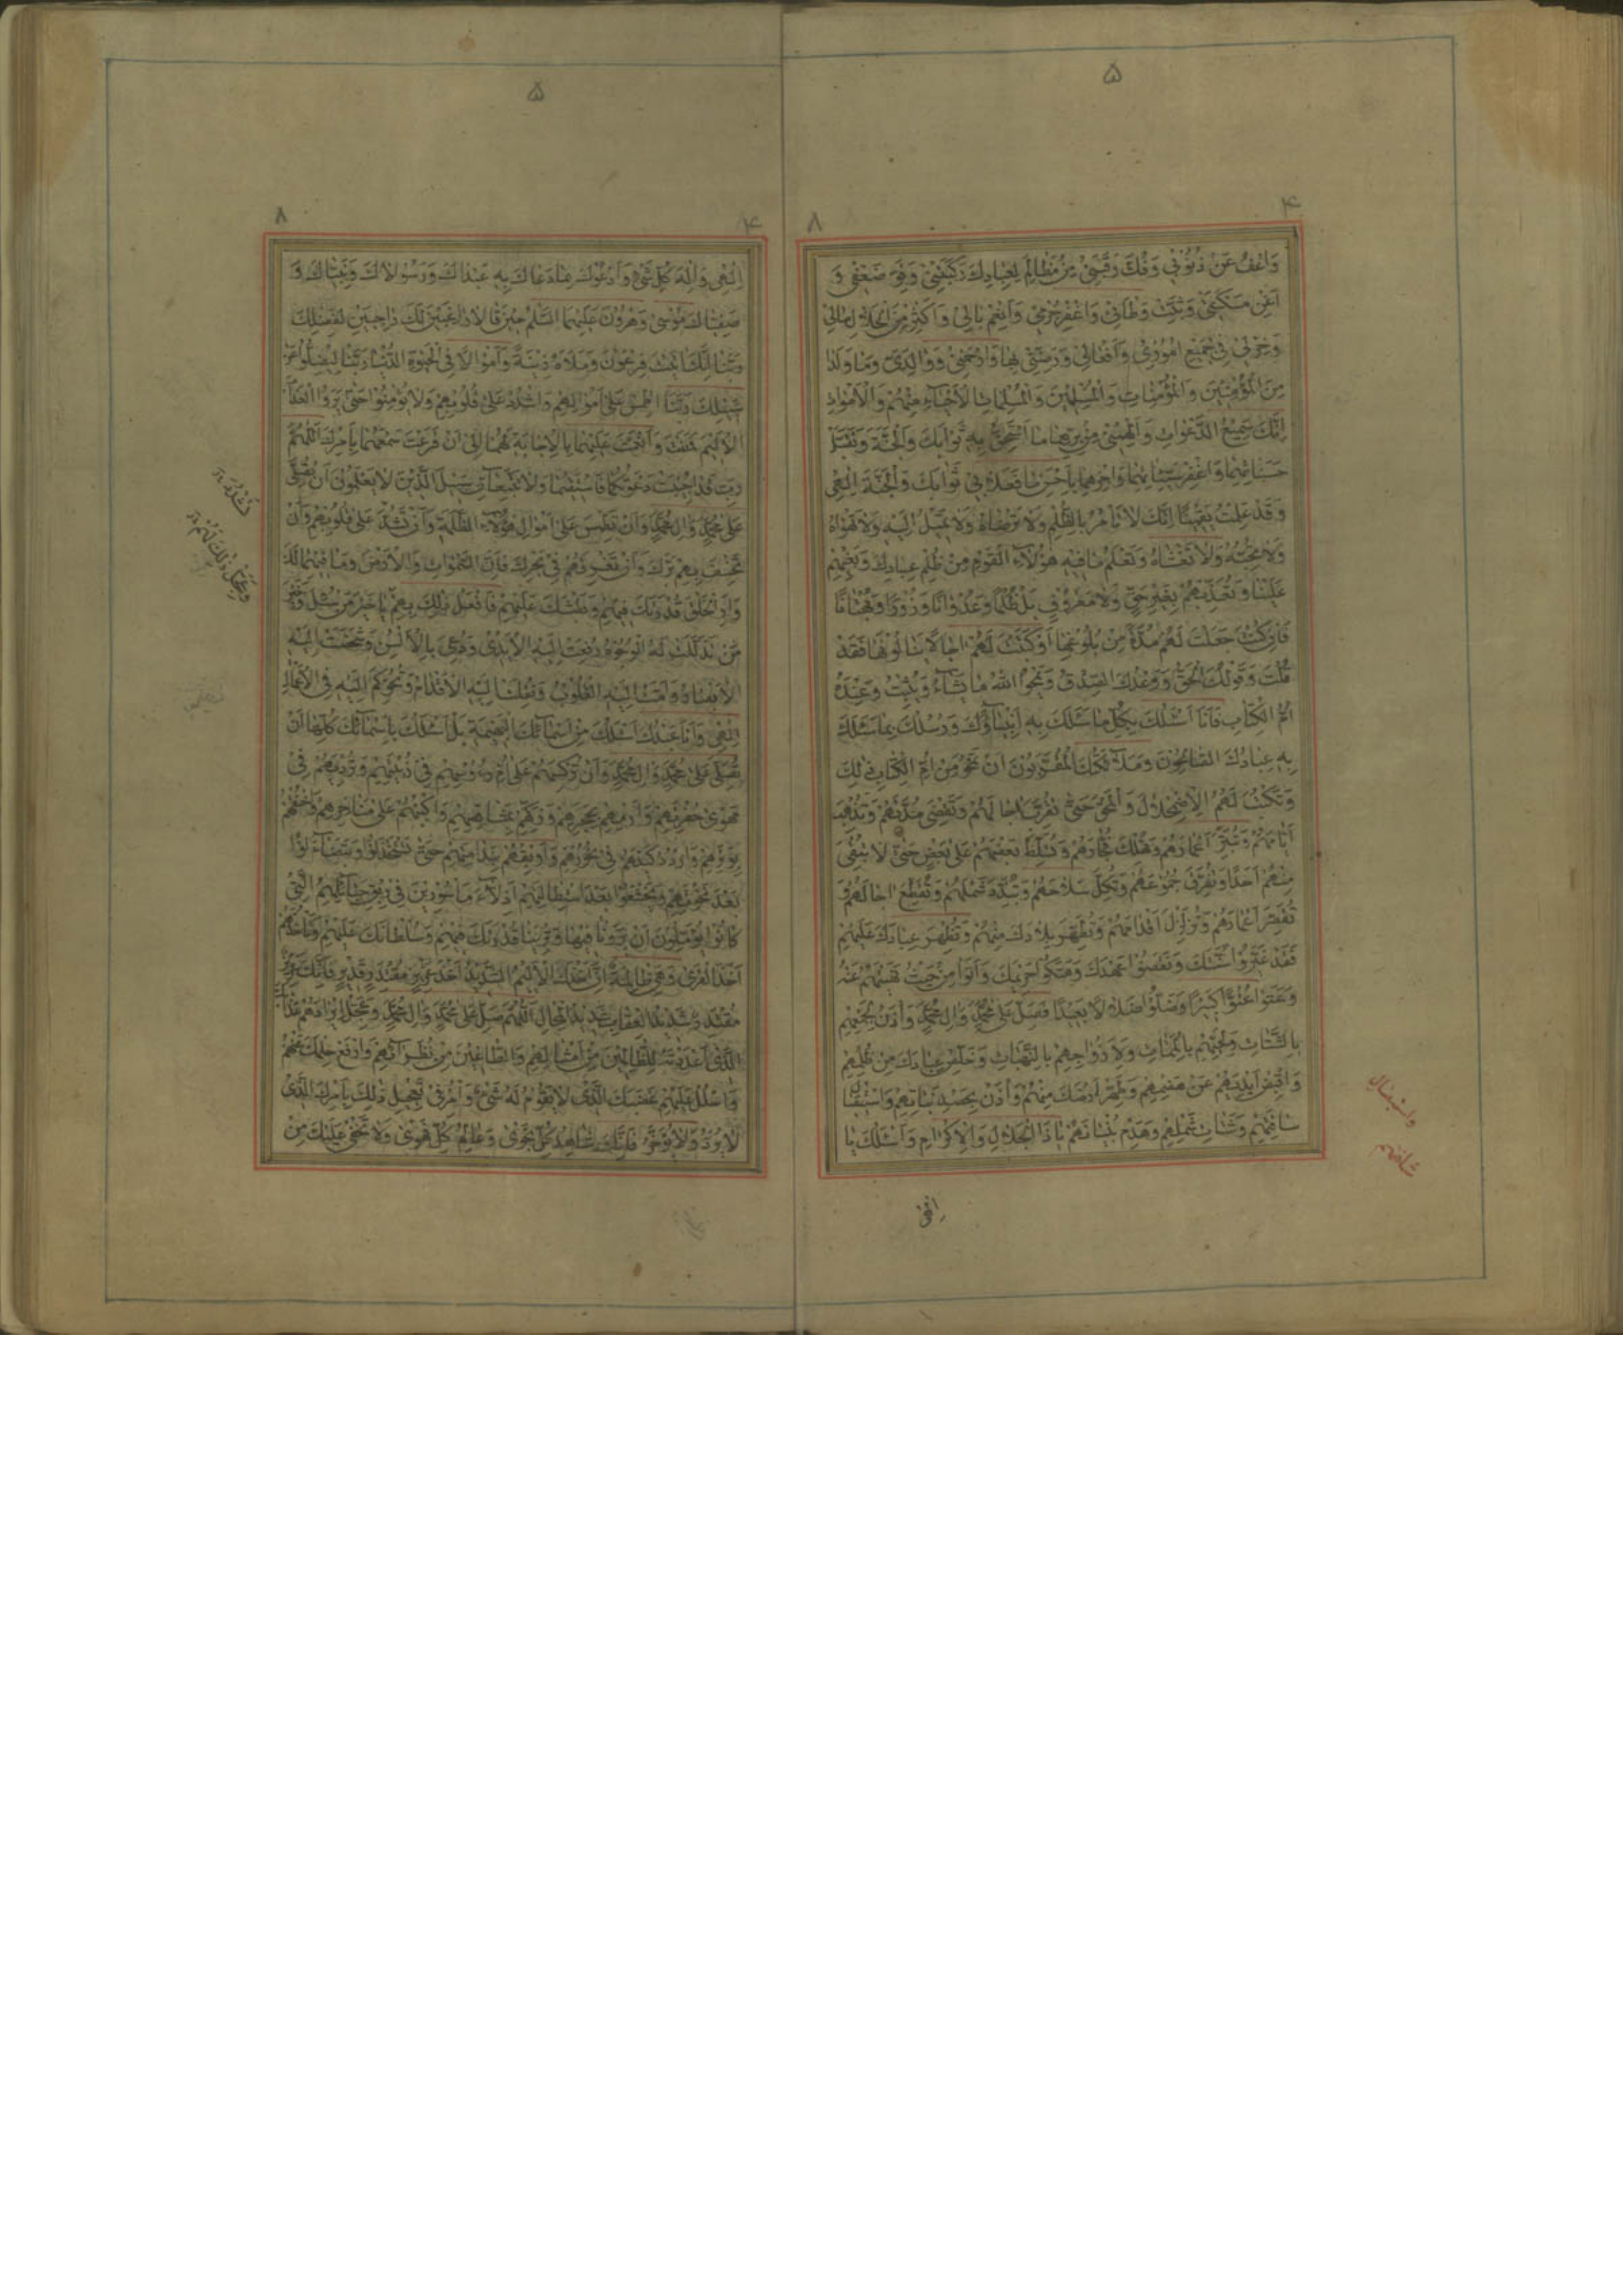 ۵
۴
۸
وَاعْفُ عَنْ ذُنُوبِي وَفُكَّ رَقَبَتِي مِنْ مَظَالِمَ لِعِبَادِكَ رَكِبَتْنِي وَقَوِّ ضَعْفِي وَ
أَغْنِ مَسْكَنَتِي وَثَبِّتْ وَطْأَتِي وَاغْفِرْ جُرْمِي وَأَنْعِمْ بَالِي وَأَكْثِرْ مِنَ الْحَلَالِ مَالِي
وَخِرْ لِي فِي جَمِيعِ أُمُورِي وَأَفْعَالِي وَرَضِّنِي بِهَا وَارْحَمْنِي وَوَالِدَيَّ وَمَا وَلَدَا
مِنَ الْمُؤْمِنِينَ وَالْمُؤْمِنَاتِ وَالْمُسْلِمِينَ وَالْمُسْلِمَاتِ الْأَحْيَاءِ مِنْهُمْ وَالْأَمْوَاتِ
إِنَّكَ سَمِيعُ الدَّعَوَاتِ وَأَلْهِمْنِي مِنْ بِرِّهِمَا مَا أَسْتَحِقُّ بِهِ ثَوَابَكَ وَالْجَنَّةَ وَتَقَبَّلْ
حَسَنَاتِهِمَا وَاغْفِرْ سَيِّئَاتِهِمَا وَاجْزِهِمَا بِأَحْسَنِ مَا فَعَلَا بِي ثَوَابَكَ وَالْجَنَّةَ إِلٰهِي
وَقَدْ عَلِمْتُ يَقِينًا أَنَّكَ لَا تَأْمُرُ بِالظُّلْمِ وَلَا تَرْضَاهُ وَلَا تَمِيلُ إِلَيْهِ وَلَا تَهْوَاهُ
وَلَا تُحِبُّهُ وَلَا تَغْشَاهُ وَتَعْلَمُ مَا فِيهِ هٰؤُلَاءِ الْقَوْمُ مِنْ ظُلْمِ عِبَادِكَ وَبَغْيِهِمْ
عَلَيْنَا وَتَعَدِّيهِمْ بِغَيْرِ حَقٍّ وَلَا مَعْرُوفٍ بَلْ ظُلْمًا وَعُدْوَانًا وَزُورًا وَبُهْتَانًا
فَإِنْ كُنْتَ جَعَلْتَ لَهُمْ مُدَّةً لَا بُدَّ مِنْ بُلُوغِهَا أَوْ كَتَبْتَ لَهُمْ اٰجَالًا يَنَالُونَهَا فَقَدْ
قُلْتَ وَقَوْلُكَ الْحَقُّ وَوَعْدُكَ الصِّدْقُ يَمْحُو اللهُ مَا يَشَاءُ وَيُثْبِتُ وَعِنْدَهُ
أُمُّ الْكِتَابِ فَأَنَا أَسْئَلُكَ بِكُلِّ مَا سَئَلَكَ بِهِ أَنْبِيَاؤُكَ وَرُسُلُكَ بِمَا سَئَلَكَ
بِهِ عِبَادُكَ الصَّالِحُونَ وَمَلَائِكَتُكَ الْمُقَرَّبُونَ أَنْ تَمْحُوَ مِنْ أُمِّ الْكِتَابِ ذٰلِكَ
وَتَكْتُبَ لَهُمُ الْاِضْمِحْلَالَ وَالْمَحْقَ حَتَّى تُقَرِّبَ اٰجَالَهُمْ وَتَقْضِيَ مُدَّتَهُمْ وَتُذْهِبَ
أَيَّامَهُمْ وَتُبَتِّرَ أَعْمَارَهُمْ وَتُهْلِكَ فُجَّارَهُمْ وَتُسَلِّطَ بَعْضَهُمْ عَلَى بَعْضٍ حَتَّى لَا تُبْقِيَ
مِنْهُمْ أَحَدًا وَتُفَرِّقَ جُمُوعَهُمْ وَتُكِلَّ سِلَاحَهُمْ وَتُبَدِّدَ شَمْلَهُمْ وَتُقَطِّعَ اٰجَالَهُمْ وَ
تُقَصِّرَ أَعْمَارَهُمْ وَتُزَلْزِلَ أَقْدَامَهُمْ وَتُطَهِّرَ بِلَادَكَ مِنْهُمْ وَتُظْهِرَ عِبَادَكَ عَلَيْهِمْ
فَقَدْ غَيَّرُوا سُنَّتَكَ وَنَقَضُوا عَهْدَكَ وَهَتَكُوا حَرِيمَكَ وَأَتَوْا مَا نَهَيْتَهُمْ عَنْهُ
وَعَتَوْا عُتُوًّا كَبِيرًا وَضَلُّوا ضَلَالًا بَعِيدًا فَصَلِّ عَلَى مُحَمَّدٍ وَاٰلِ مُحَمَّدٍ وَأْذَنْ لِجَمْعِهِمْ
بِالشَّتَاتِ وَلِحَيِّهِمْ بِالْمَمَاتِ وَلِأَزْوَاجِهِمْ بِالنَّهَبَاتِ وَخَلِّصْ عِبَادَكَ مِنْ ظُلْمِهِمْ
وَاقْبِضْ أَيْدِيَهُمْ عَنْ هَضْمِهِمْ وَطَهِّرْ أَرْضَكَ مِنْهُمْ وَأْذَنْ بِحَصْدِ نَبَاتِهِمْ وَاسْتِيصَالِ
شَافَتِهِمْ وَشَتَاتِ شَمْلِهِمْ وَهَدْمِ بُنْيَانِهِمْ يَا ذَا الْجَلَالِ وَالْإِكْرَامِ وَأَسْئَلُكَ يَا
واستیصال
شافتهم
إلٰهي
۵
۸
۴
إِلٰهِي وَإِلٰهَ كُلِّ شَيْءٍ وَأَدْعُوكَ بِمَا دَعَاكَ بِهِ عَبْدَاكَ وَرَسُولَاكَ وَنَبِيَّاكَ وَ
صَفِيَّاكَ مُوسَى وَهٰرُونُ عَلَيْهِمَا السَّلَامُ حِينَ قَالَا دَاعِيَيْنِ لَكَ رَاجِيَيْنِ لِفَضْلِكَ
رَبَّنَا إِنَّكَ اٰتَيْتَ فِرْعَوْنَ وَمَلَأَهُ زِينَةً وَأَمْوَالًا فِي الْحَيٰوةِ الدُّنْيَا رَبَّنَا لِيُضِلُّوا عَنْ
سَبِيلِكَ رَبَّنَا اطْمِسْ عَلَى أَمْوَالِهِمْ وَاشْدُدْ عَلَى قُلُوبِهِمْ وَلَا يُؤْمِنُوا حَتَّى يَرَوُا الْعَذَابَ
الْأَلِيمَ فَمَنَنْتَ وَأَنْعَمْتَ عَلَيْهِمَا بِالْإِجَابَةِ لَهُمَا إِلَى أَنْ قَرَعْتَ سَمْعَهُمَا بِأَمْرِكَ اللّٰهُمَّ
رَبِّ قَدْ أُجِيبَتْ دَعْوَتُكُمَا فَاسْتَقِيمَا وَلَا تَتَّبِعَانِّ سَبِيلَ الَّذِينَ لَا يَعْلَمُونَ أَنْ تُصَلِّيَ
عَلَى مُحَمَّدٍ وَاٰلِ مُحَمَّدٍ وَأَنْ تَطْمِسَ عَلَى أَمْوَالِ هٰؤُلَاءِ الظَّلَمَةِ وَأَنْ تَشُدَّ عَلَى قُلُوبِهِمْ وَأَنْ
تَخْسِفَ بِهِمْ بَرَّكَ وَأَنْ تُغْرِقَهُمْ فِي بَحْرِكَ فَإِنَّ السَّمٰوَاتِ وَالْأَرْضَ وَمَا فِيهِمَا لَكَ
وَأَرِ الْخَلْقَ قُدْرَتَكَ فِيهِمْ وَبَطْشَكَ عَلَيْهِمْ فَافْعَلْ ذٰلِكَ بِهِمْ يَا خَيْرَ مَنْ سُئِلَ وَخَيْرَ
مَنْ تَذَلَّلَتْ لَهُ الْوُجُوهُ رُفِعَتْ إِلَيْهِ الْأَيْدِي وَدُعِيَ بِالْأَلْسُنِ وَشَخَصَتْ إِلَيْهِ
الْأَبْصَارُ وَأَمَّتْ إِلَيْهِ الْقُلُوبُ وَنُقِلَتْ إِلَيْهِ الْأَقْدَامُ وَتُحُوكِمَ إِلَيْهِ فِي الْأَعْمَالِ
إِلٰهِي وَأَنَا عَبْدُكَ أَسْئَلُكَ مِنْ أَسْمَائِكَ بِأَبْهَاهَا بَلْ أَسْئَلُكَ بِأَسْمَائِكَ كُلِّهَا أَنْ
تُصَلِّيَ عَلَى مُحَمَّدٍ وَاٰلِ مُحَمَّدٍ وَأَنْ تُرْكِسَهُمْ عَلَى أُمِّ رُءُوسِهِمْ فِي زُبْيَتِهِمْ وَتُرْدِيَهُمْ فِي
مَهْوَى حُفْرَتِهِمْ وَارْمِهِمْ بِحَجَرِهِمْ وَذَكِّهِمْ بِمَشَاقِصِهِمْ وَاكْبُبْهُمْ عَلَى مَنَاخِرِهِمْ وَاخْنُقْهُمْ
بِوَتَرِهِمْ وَارْدُدْ كَيْدَهُمْ فِي نُحُورِهِمْ وَأَوْبِقْهُمْ بِنَدَامَتِهِمْ حَتَّى يَسْتَخْذِلُوا وَيَتَضَاءَلُوا
بَعْدَ نَخْوَتِهِمْ وَيَخْشَعُوا بَعْدَ اسْتِطَالَتِهِمْ أَذِلَّاءَ مَأْسُورِينَ فِي رِبَقِ حَبَائِلِهِمُ الَّتِي
كَانُوا يُؤَمِّلُونَ أَنْ يَرَوْنَا فِيهَا وَتُرِيَنَا قُدْرَتَكَ فِيهِمْ وَسُلْطَانَكَ عَلَيْهِمْ وَتَأْخُذَهُمْ
أَخْذَ الْقُرَى وَهِيَ ظَالِمَةٌ إِنَّ أَخْذَكَ الْأَلِيمُ الشَّدِيدُ أَخْذَ عَزِيزٍ مُقْتَدِرٍ فَإِنَّكَ عَزِيزٌ
مُقْتَدِرٌ شَدِيدُ الْعِقَابِ شَدِيدُ الْمِحَالِ اللّٰهُمَّ صَلِّ عَلَى مُحَمَّدٍ وَاٰلِ مُحَمَّدٍ وَعَجِّلْ إِيرَادَهُمْ عَذَابَكَ
الَّذِي أَعْدَدْتَهُ لِلظَّالِمِينَ مِنْ أَمْثَالِهِمْ وَالطَّاغِينَ مِنْ نُظَرَائِهِمْ وَارْفَعْ حِلْمَكَ عَنْهُمْ
وَاحْلُلْ عَلَيْهِمْ غَضَبَكَ الَّذِي لَا يَقُومُ لَهُ شَيْءٌ وَأْمُرْ فِي تَعْجِيلِ ذٰلِكَ بِأَمْرِكَ الَّذِي
لَا يُرَدُّ وَلَا يُؤَخَّرُ فَإِنَّكَ شَاهِدُ كُلِّ نَجْوَى وَعَالِمُ كُلِّ فَحْوَى وَلَا تَخْفَى عَلَيْكَ مِنْ
وَتُعَجِّلَ ذٰلِكَ لَهُمْ